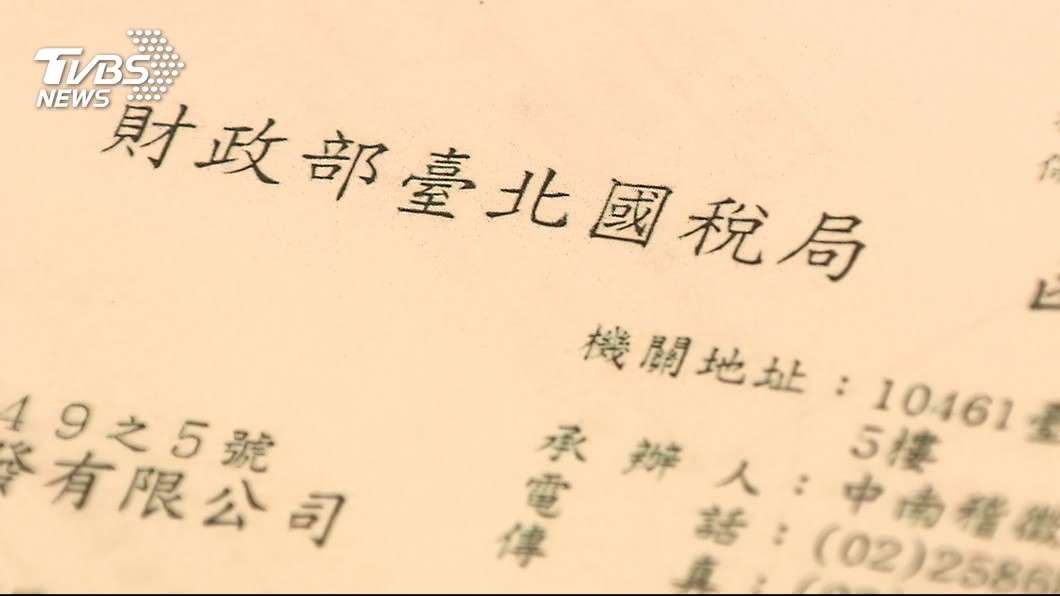 TVBS
NEWS
財政部臺北國稅局
機關地址：10461臺
5樓
49之5號
發有限公司
承辦人：中南稽徵
電話：(02)2586
傳真：(02)